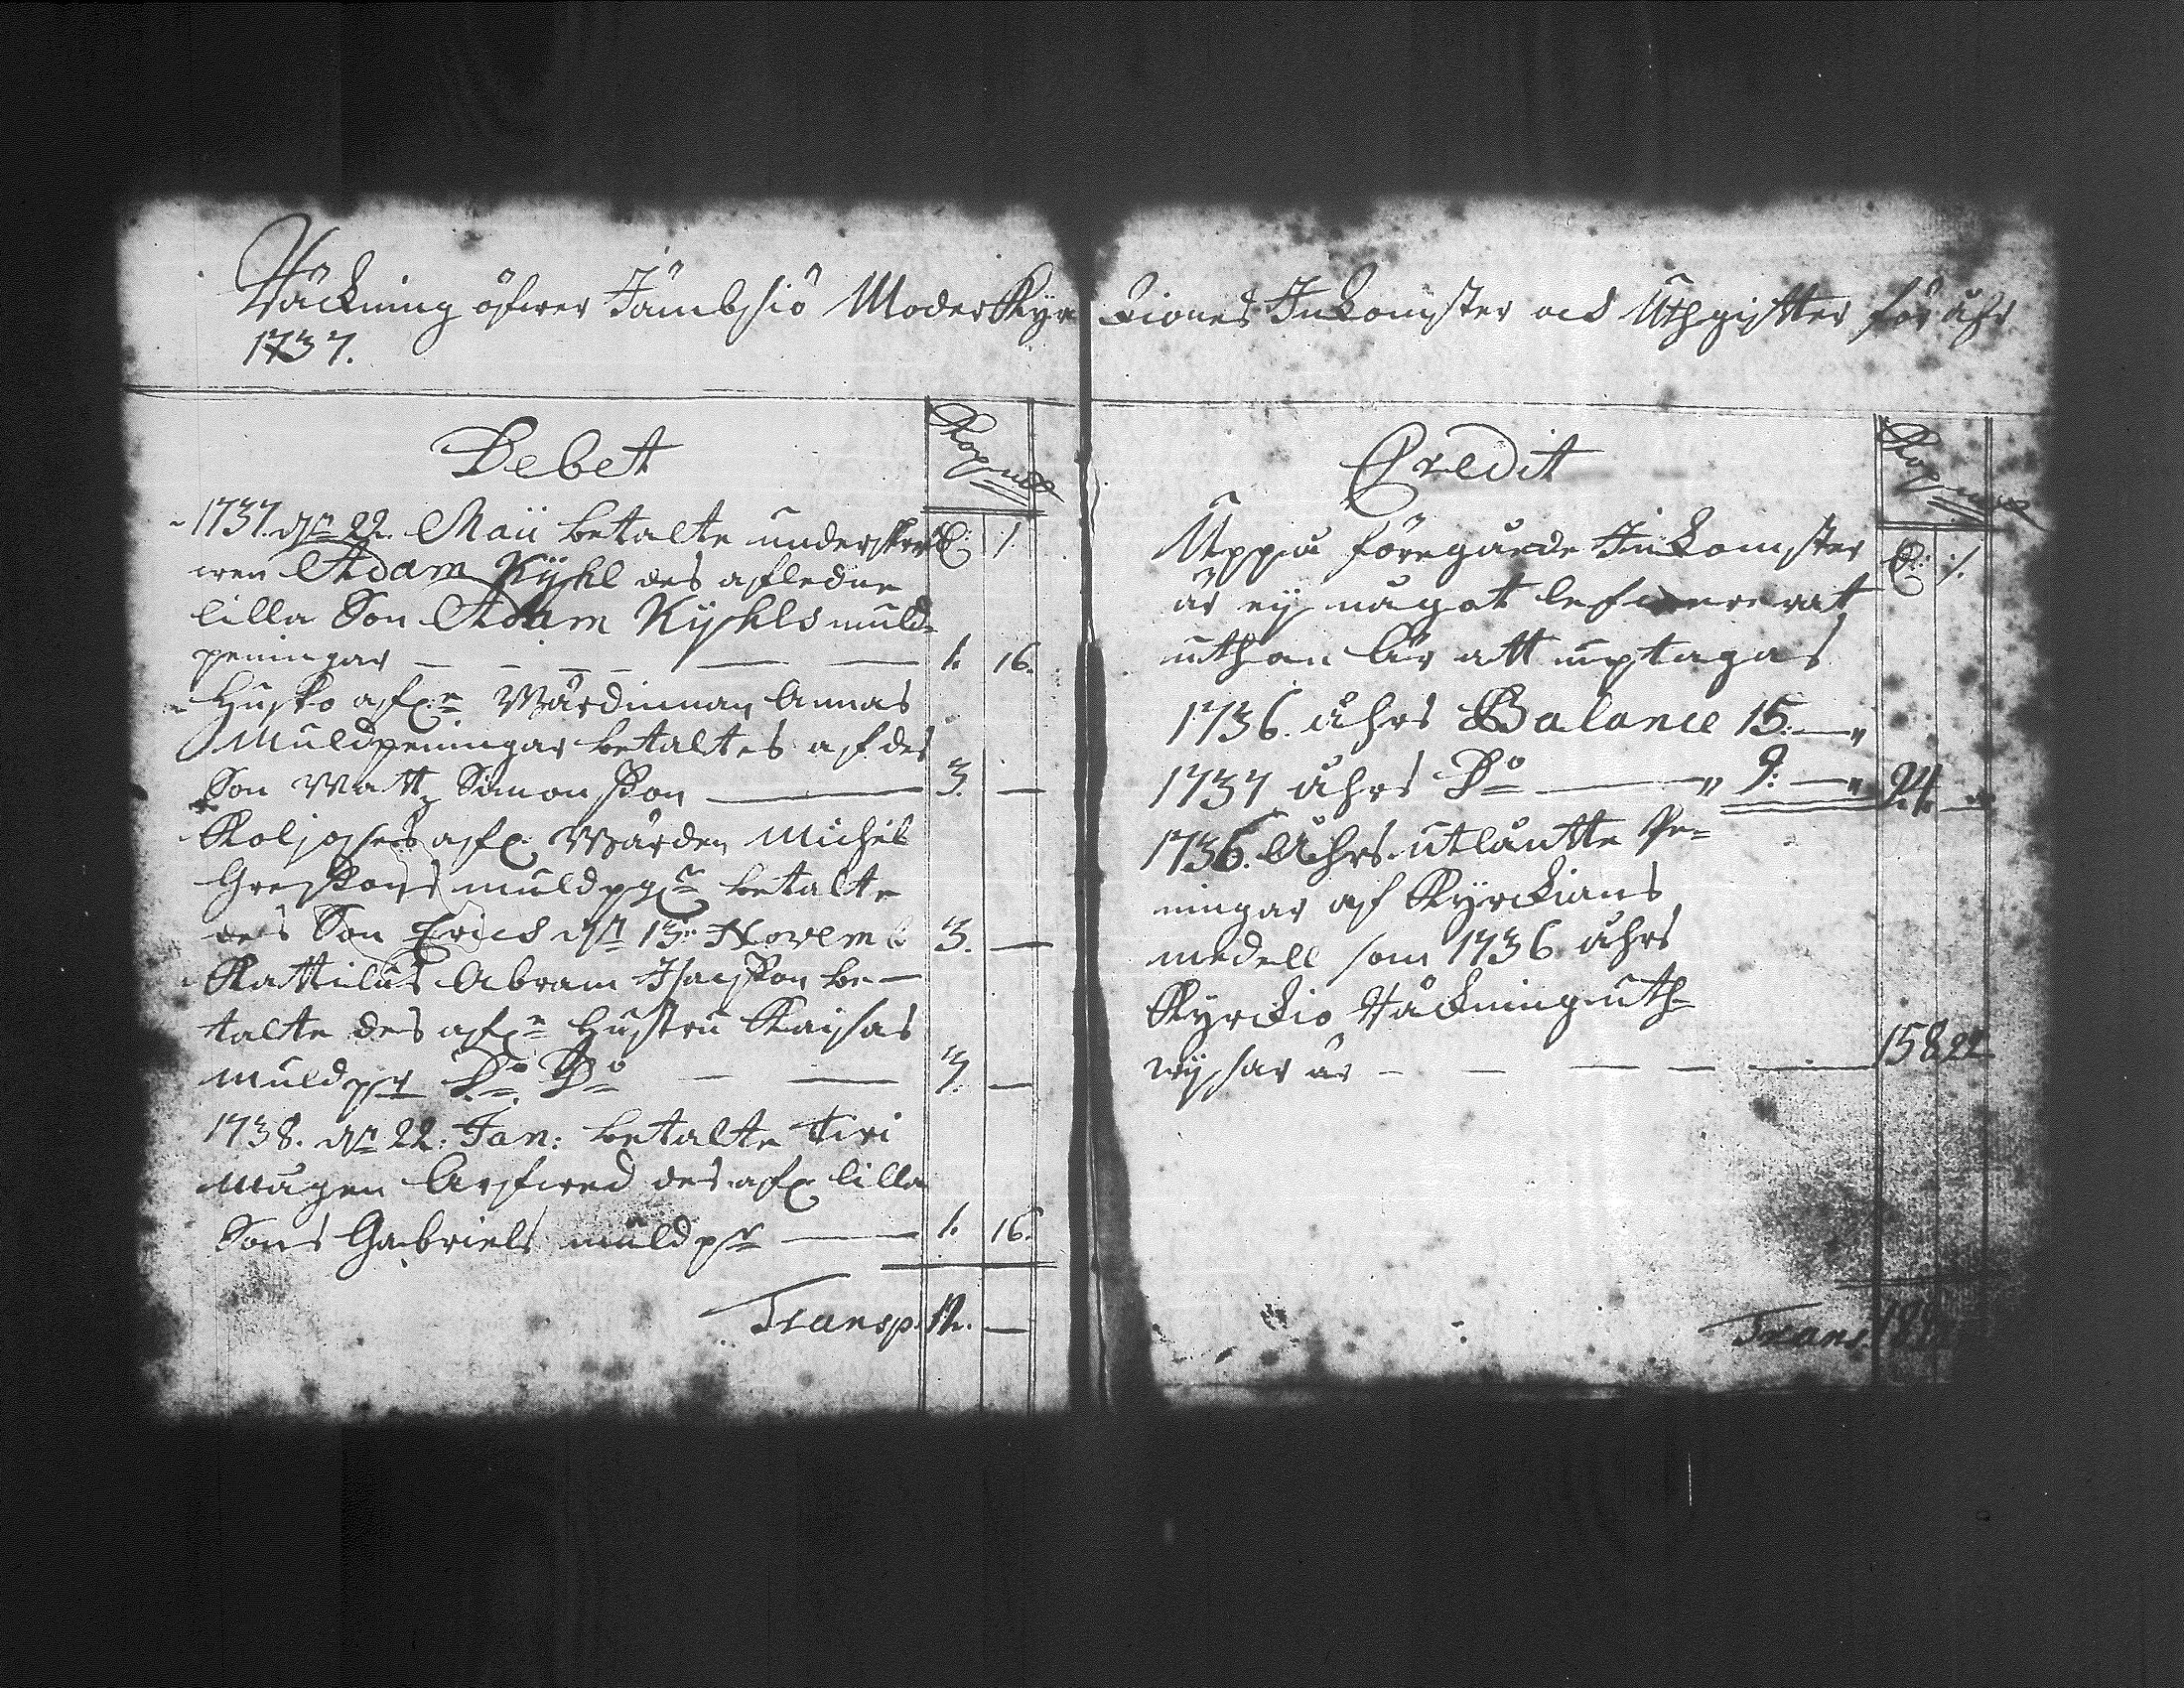 Räckning öfwer Jämbsiö Moder Kyrckiones Inkomster och Uthgifter för åhr
1737.
Debet
Kop.mt
1737. dn 22. Maii betalte underskref D: /.
wen Adam Kyhl des afledne
lilla Son Adam Kyhls muld-
peningar — — — — — 1. 16.
Husko afl:ne Wärdinnan Annas
Muldpeningar betaltes af des
Son Matz Simonsson — 3. —
Koljos afl. Wärden Michel
Gresson muldpgr betalte
des Son Erick dn 13. Novemb 3. —
Kattilus Abram Isacsson be-
talte des afl:ne Hustru Kaisas
muldpr Do Do — — 3. —
1738. dn 22. Jan: betalte
mågen des afl. lilla
Sons Gabriels muldpr — 1. 16.
Transp. 12. —
Credit
Kop.mt
Uppå föregånde Inkomster D: /.
är ej något lefwererat
uthan bör att upptagas
1736. åhrs Balance 15. — "
1737 åhrs Do — " 9: — " 24. —
1736. Åhrs utlåntte Pe-
ningar af Kyrckians
medell som 1736 åhrs
Kyrckio Räckning uth-
wysar är — — — — — 158 22
Trans. 182